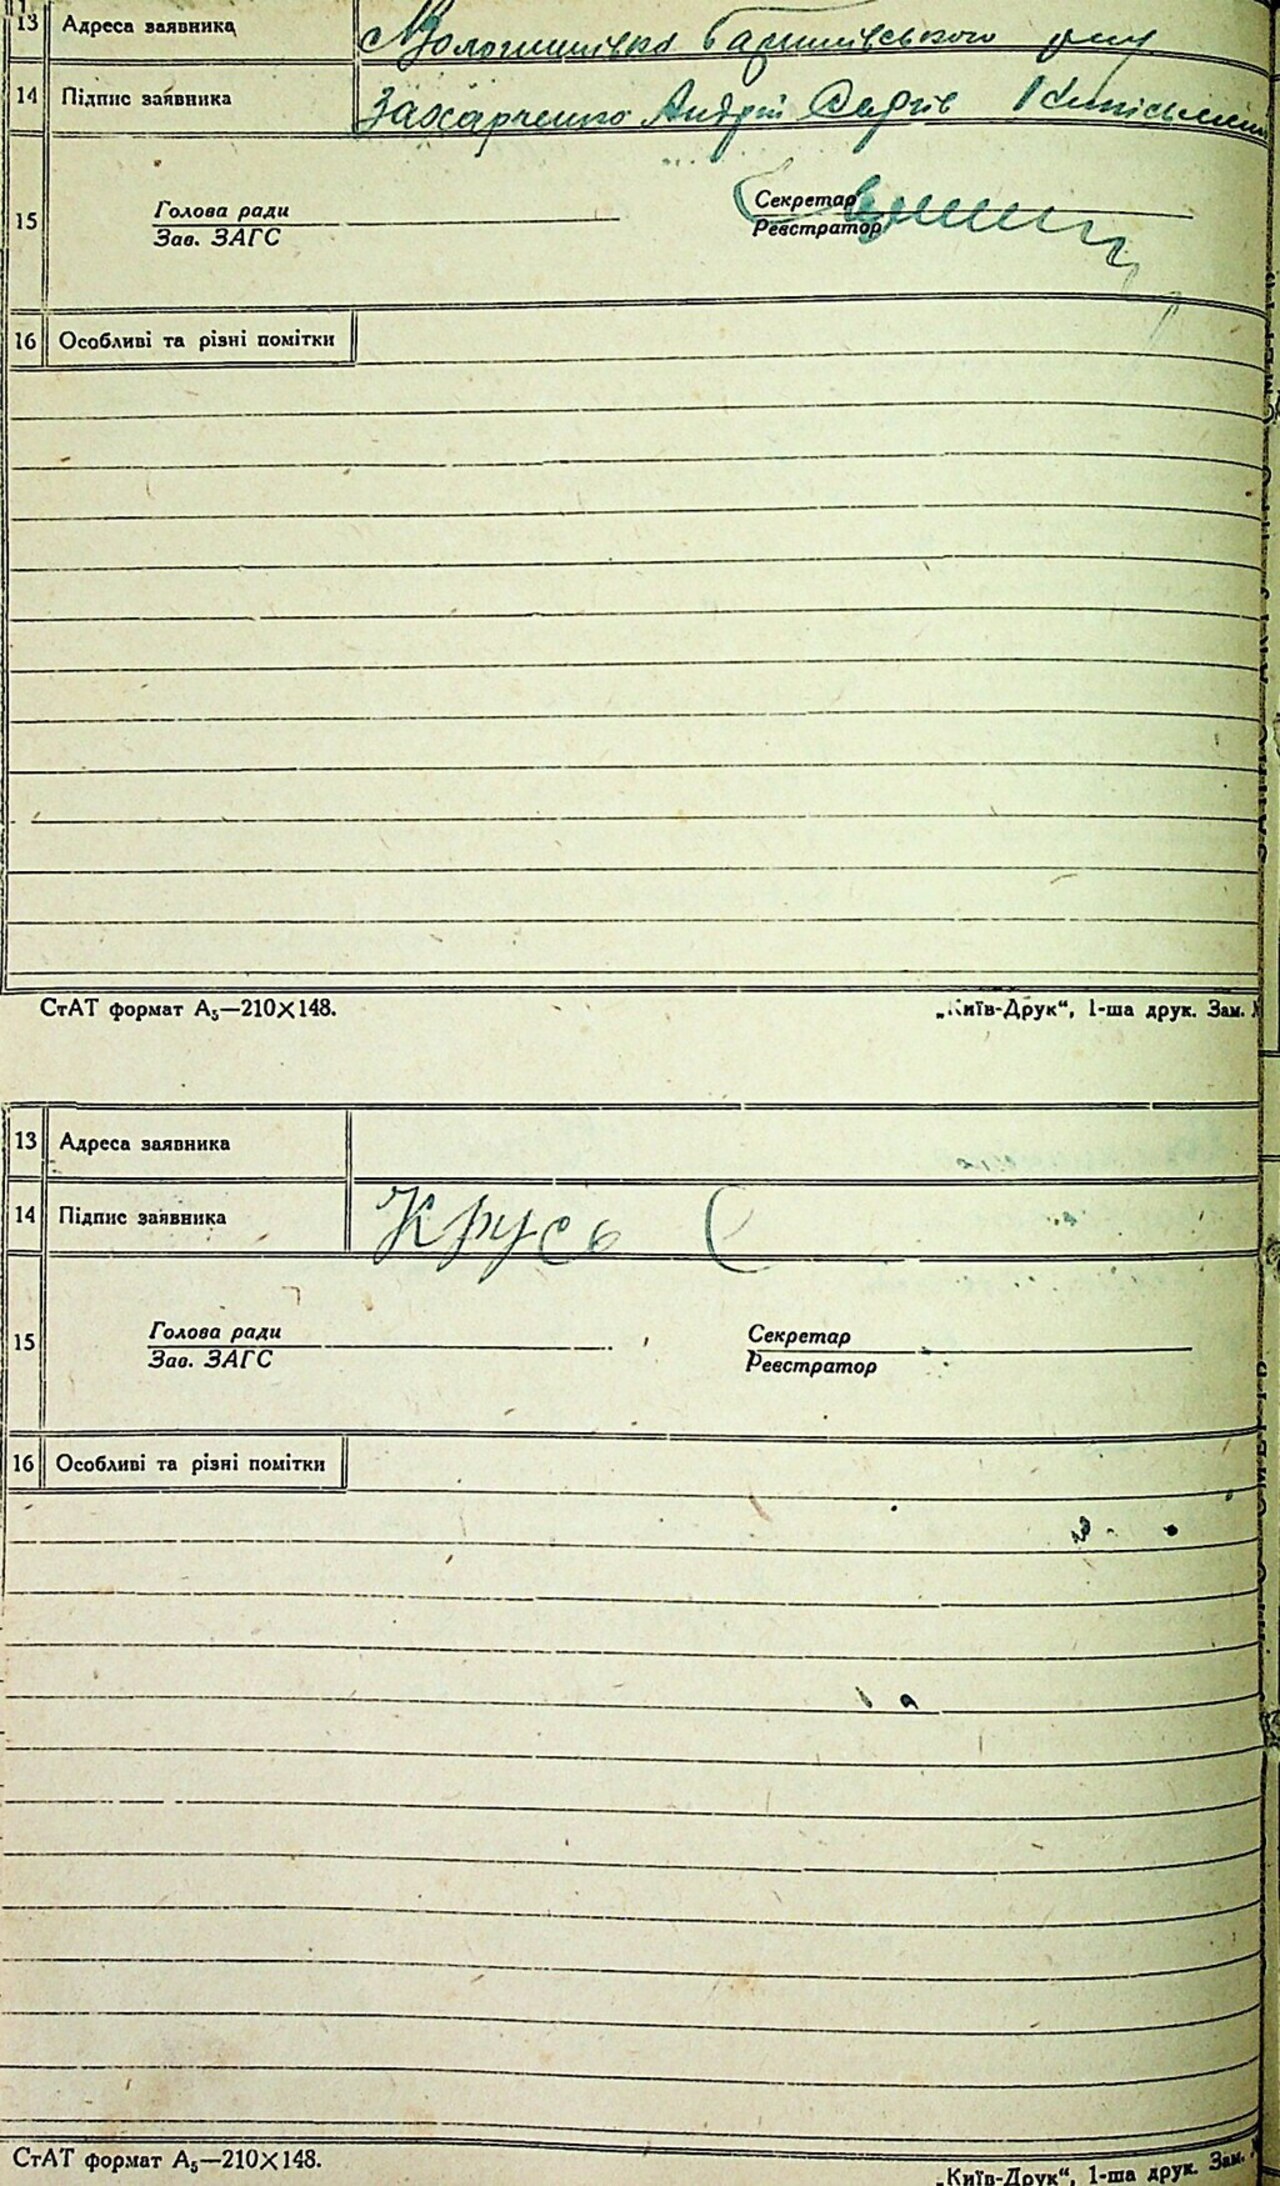 13 Адреса заявника с Волошинівка Баришівського р-ну
14 Підпис заявника Захарченко Андрій
15 Голова ради Секретар
Зав. ЗАГС Реєстратор
16 Особливі та різні помітки
СтАТ формат А₅—210×148. „Київ-Друк“, 1-ша друк. Зам.
13 Адреса заявника
14 Підпис заявника Крусь (
15 Голова ради Секретар
Зав. ЗАГС Реєстратор
16 Особливі та різні помітки
СтАТ формат А₅—210×148. „Київ-Друк“, 1-ша друк. Зам.